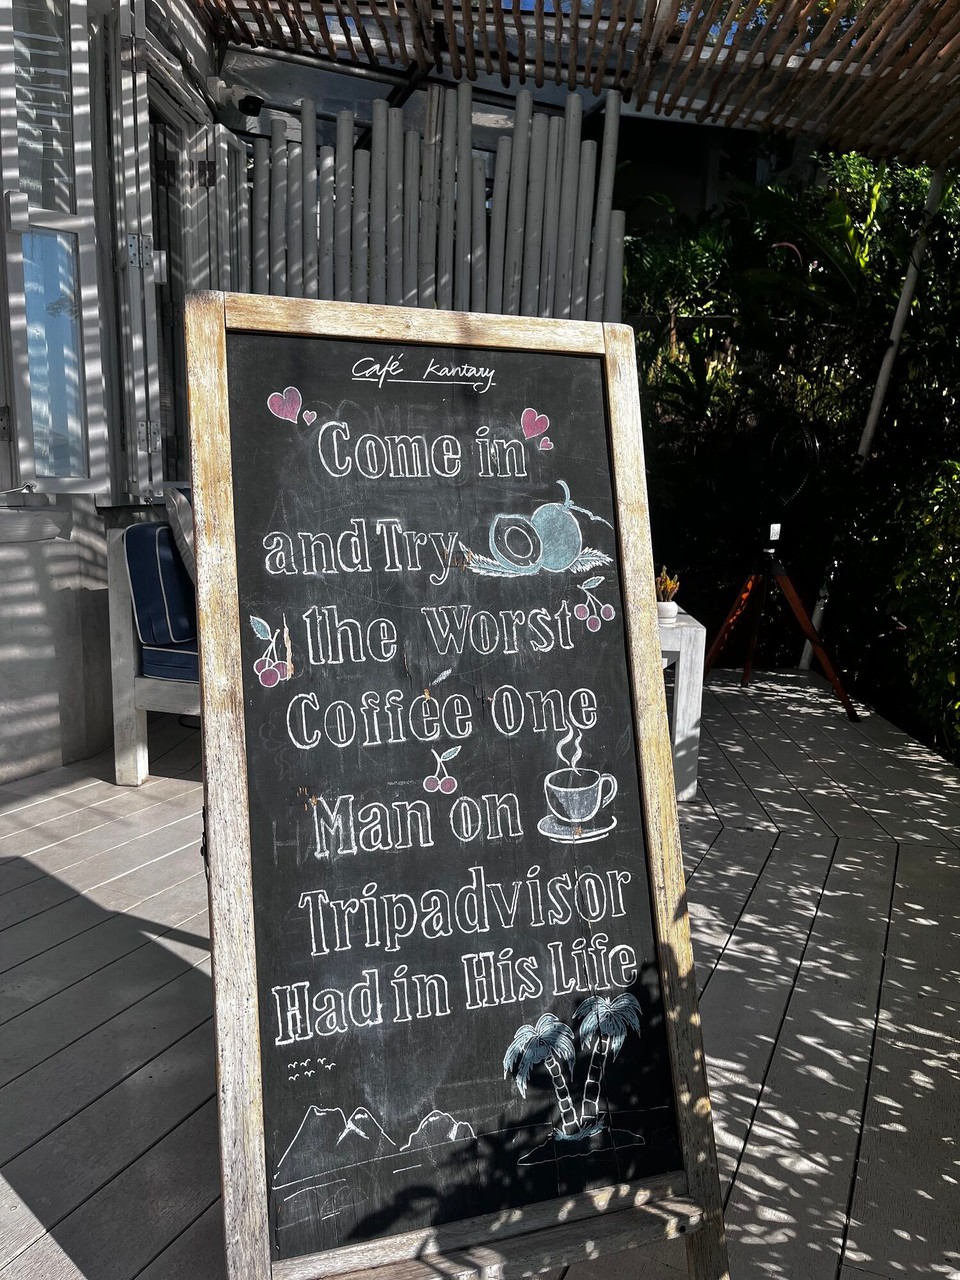 Café Kantary
Come in
and Try
the Worst
Coffee One
Man on
Tripadvisor
Had in His Life